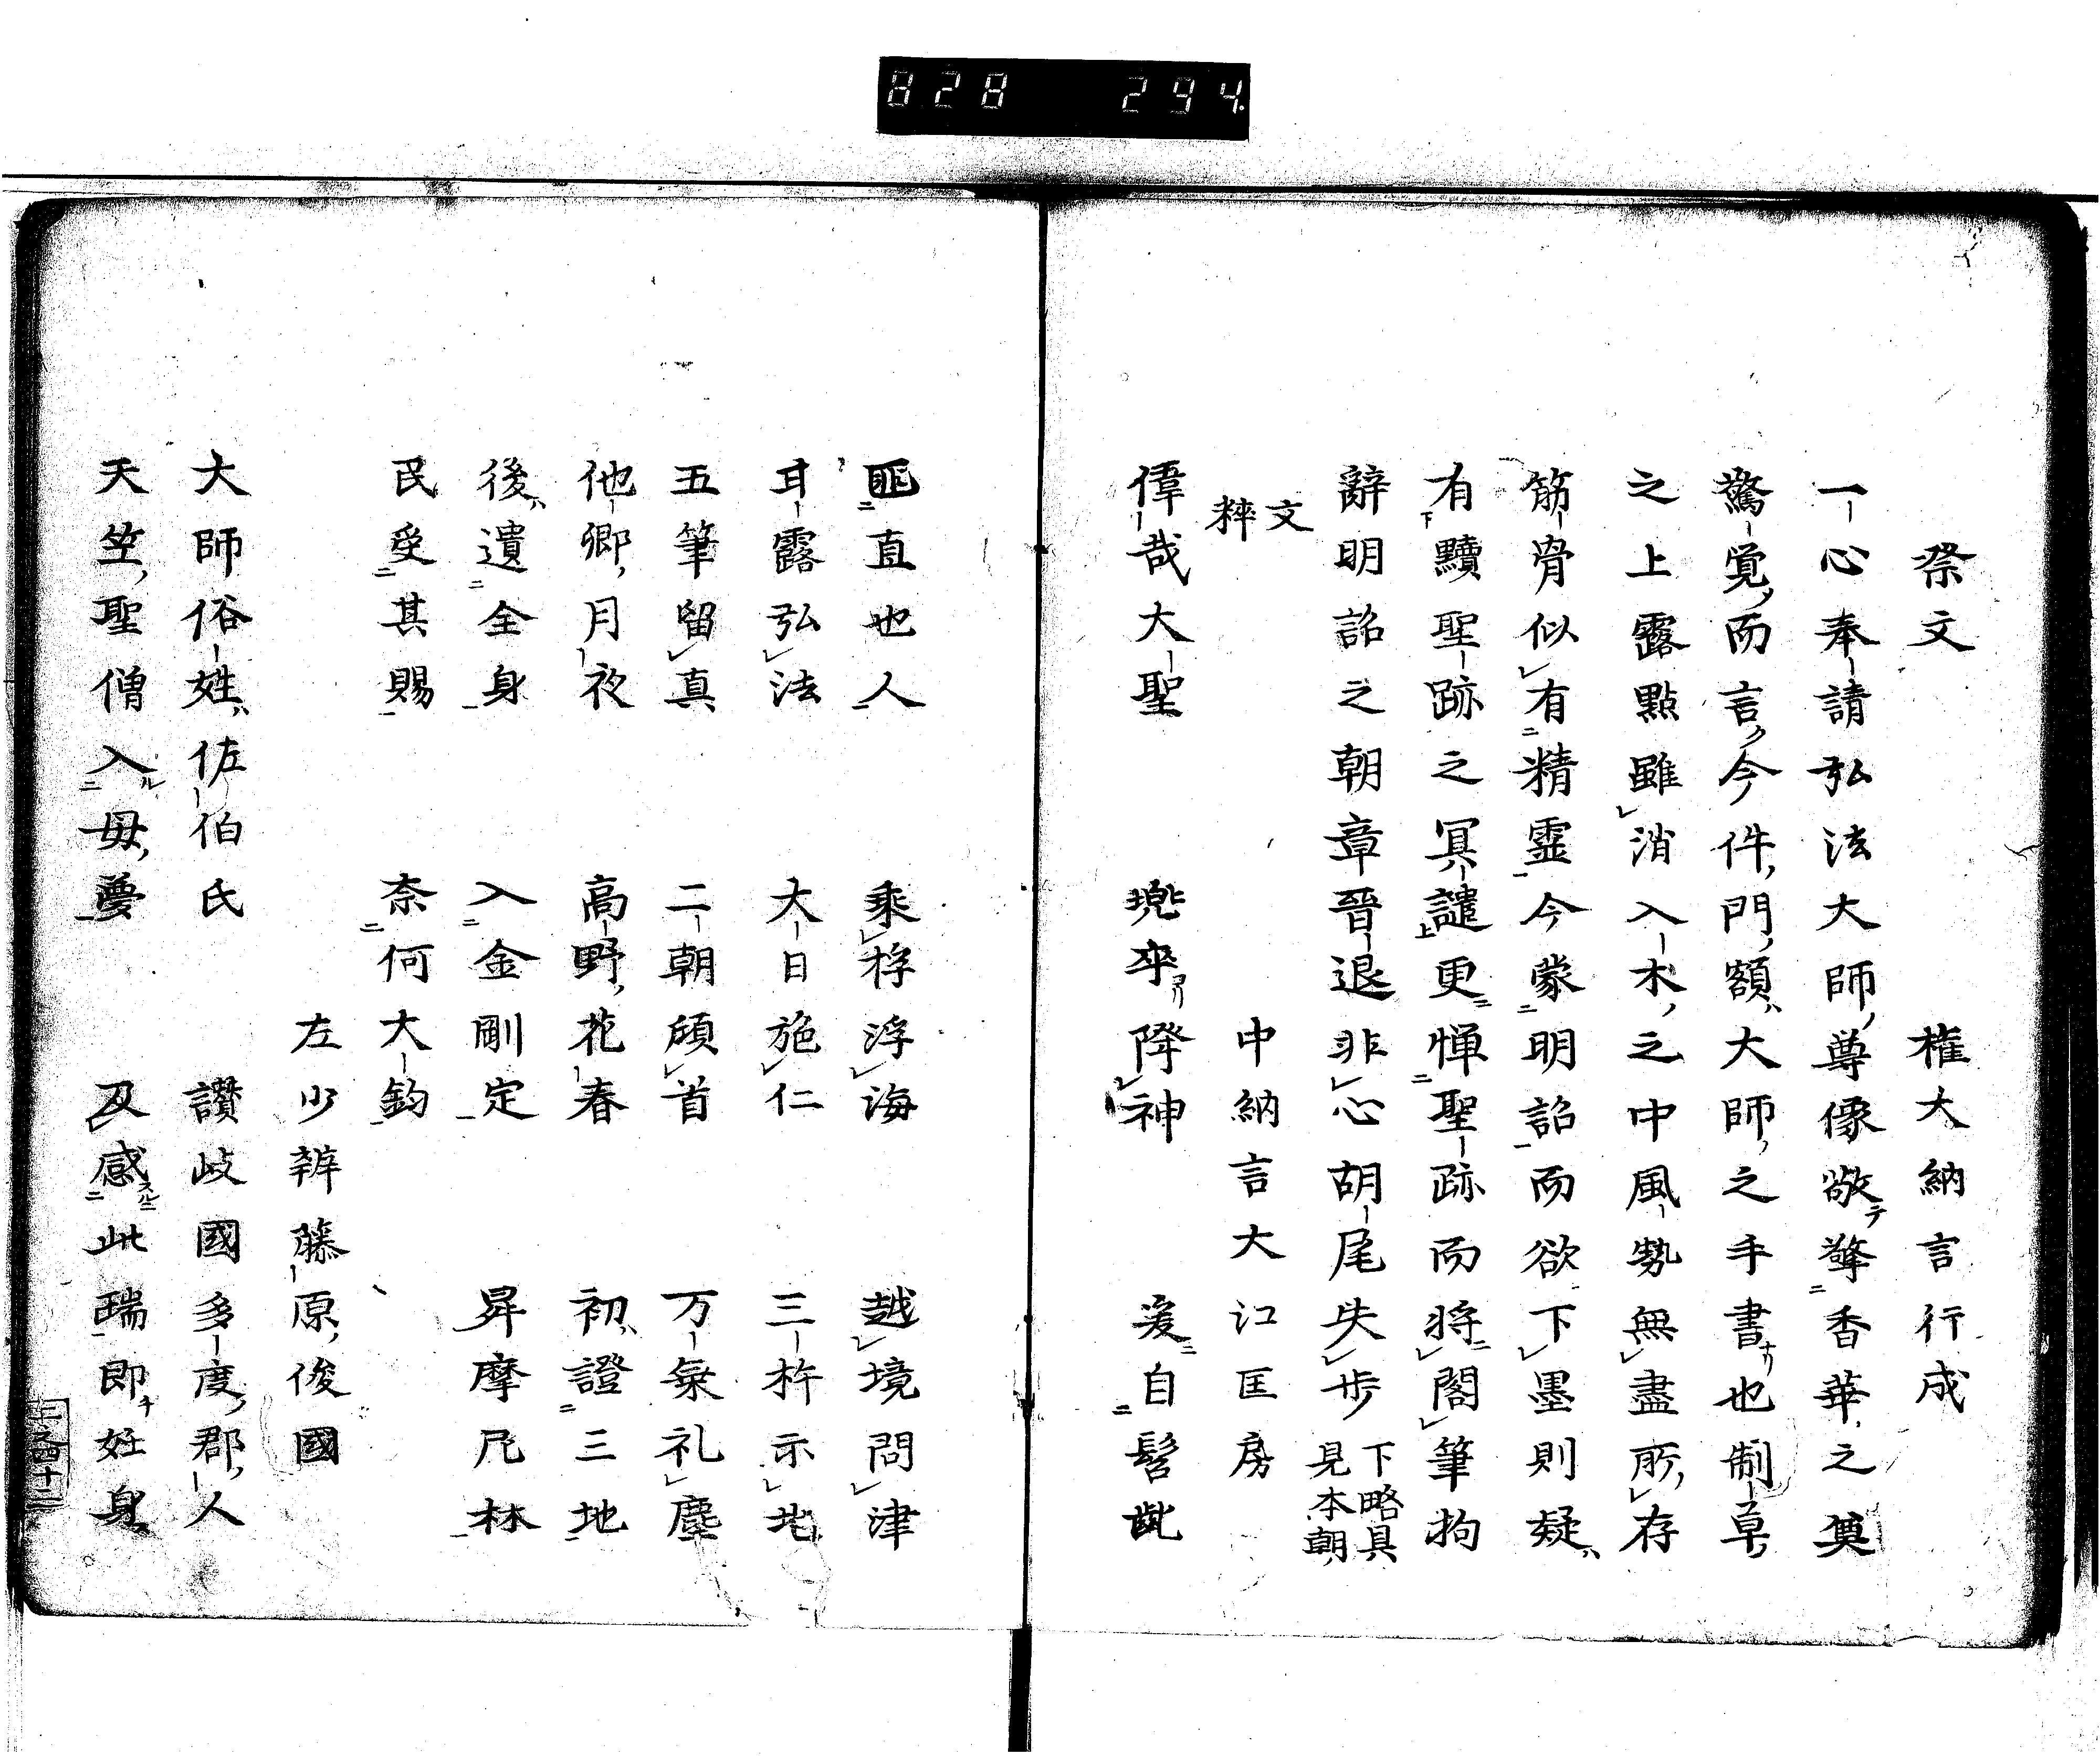 828 294
祭文 権大納言行成
一心奉請弘法大師尊像敬擎香華之奠
驚覚而言今件門額大師之手書也制草
之上露點雖消入木之中風勢無盡所存
筋骨似有精霊今蒙明詔而欲下墨則疑
有黷聖跡之冥譴更憚聖跡而將閣筆拘
辭明詔之朝章晉退非心胡尾失歩 下略具見本朝
文粹
中納言大江匡房
偉哉大聖 兜率降神 爰自髫齔
匪直也人 乗桴浮海 越境問津
耳露弘法 大日施仁 三杵示北
五筆留真 二朝頎首 万乗礼塵
他郷月夜 高野花春 初證三地
後遺全身 入金剛定 昇摩尼林
民受其賜 奈何大鈞
左少辨藤原俊國
大師俗姓佐伯氏 讃岐國多度郡人
天竺聖僧入母夢 及感此瑞即妊身
上之四十二